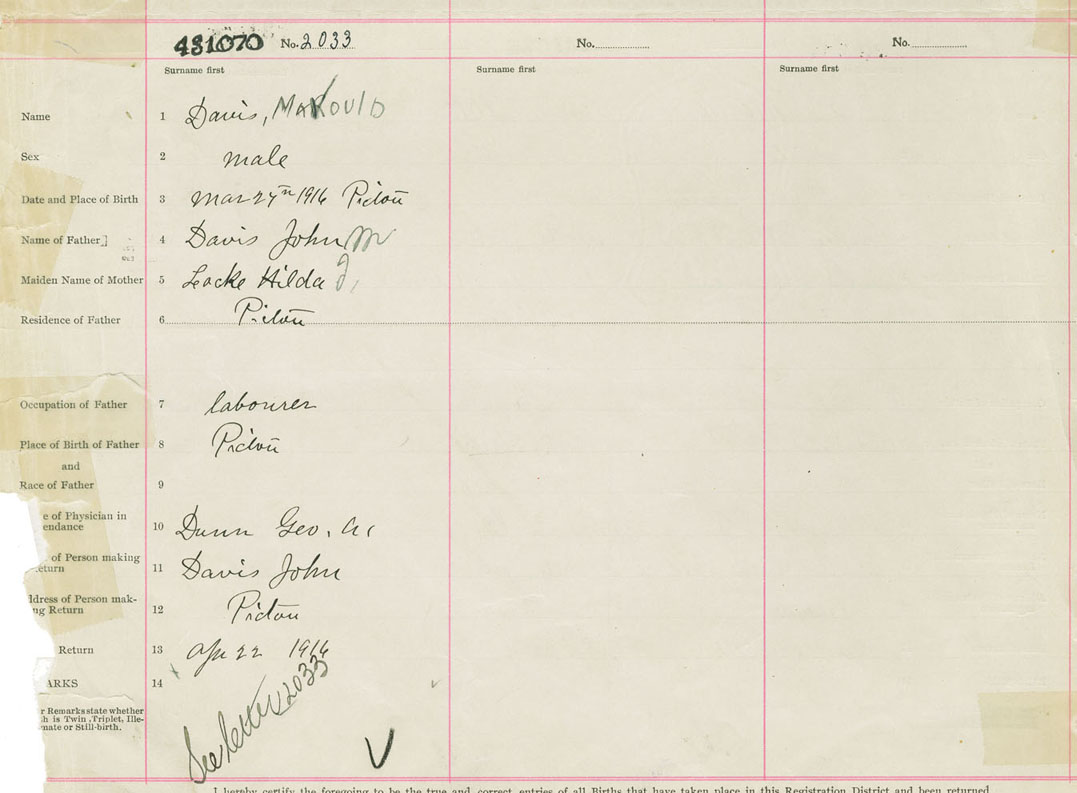 431070 No. 2033 No. No.
Surname first Surname first Surname first
Name 1 Davis,
Sex 2 male
Date and Place of Birth 3 Mar 27th 1916 Picton
Name of Father] 4 Davis John M
Maiden Name of Mother 5 Locke Hilda J.
Residence of Father 6 Picton
Occupation of Father 7 labourer
Place of Birth of Father 8 Picton
and
Race of Father 9
e of Physician in
endance 10 Dunn Geo. A.
of Person making
eturn 11 Davis John
ddress of Person mak-
ng Return 12 Picton
Return 13 Apr 22 1916
ARKS 14
r Remarks state whether
h is Twin, Triplet, Ille-
mate or Still-birth.
See letter 2033
I hereby certify the foregoing to be the true and correct entries of all Births that have taken place in this Registration District and been returned